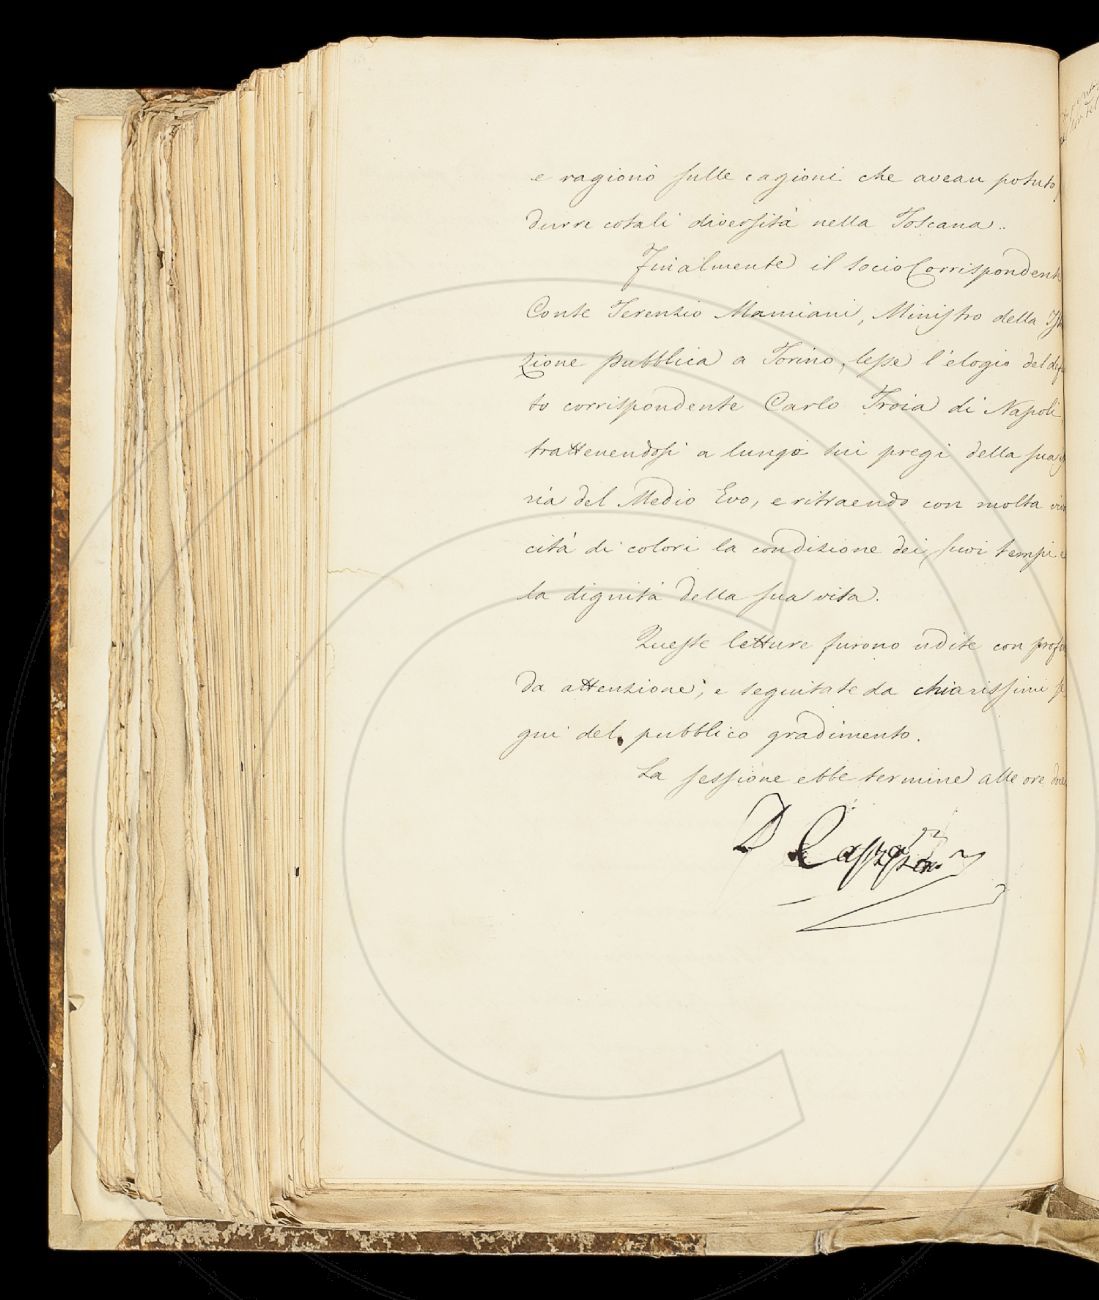 e ragionò sulle cagioni che avean potuto
durre cotali diversità nella Toscana.
Finalmente il socio Corrispondent
Conte Terenzio Mamiani, Ministro della
zione pubblica a Torino, lesse l'elogio del
to corrispondente Carlo Troia di Napoli
trattenendosi a lungo sui pregi della sua
ria del Medio Evo, e ritraendo con molta
cità di colori la condizione dei suoi tempi e
la dignità della sua vita.
Queste letture furono udite con prof
da attenzione; e seguitate da chiarissimi
gni del pubblico gradimento.
La sessione ebbe termine alle ore